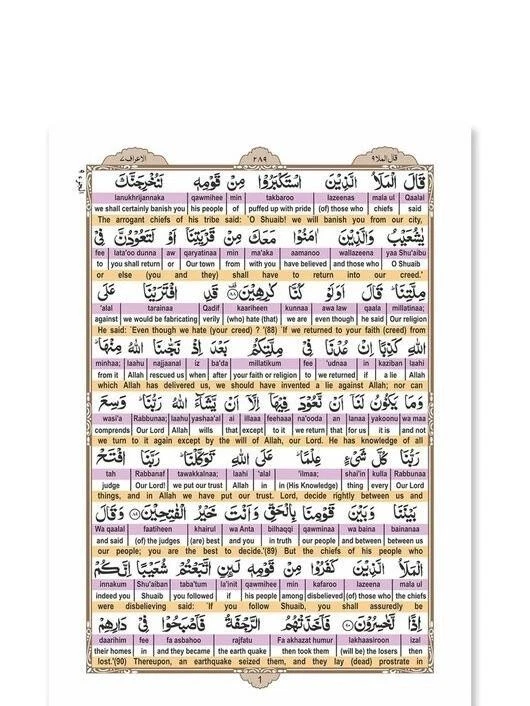 قال الملا٩ ٢٨٩ الاعراف٧
قَالَ الْمَلَاُ الَّذِيْنَ اسْتَكْبَرُوْا مِنْ قَوْمِهٖ لَنُخْرِجَنَّكَ
lanukhrijannaka qawmihee min takbaroo lazeenas mala ul Qaalal
we shall certainly banish you his people of puffed up with pride (of) those who chiefs said
The arrogant chiefs of his tribe said: 'O Shuaib! we will banish you from our city,
يٰشُعَيْبُ وَالَّذِيْنَ اٰمَنُوْا مَعَكَ مِنْ قَرْيَتِنَاۤ اَوْ لَتَعُوْدُنَّ فِيْ
fee lata'oo dunna aw qaryatinaa min ma'aka aamanoo wallazeena yaa Shu'aibu
to you shall return or Our town from with you have believed and those who O Shuaib
or else (you and they) shall have to return into our creed.'
مِلَّتِنَا قَالَ اَوَلَوْ كُنَّا كٰرِهِيْنَ ۝٨٨ قَدِ افْتَرَيْنَا عَلَى
'alal tarainaa Qadif kaariheen kunnaa awa law qaala millatinaa;
against we would be fabricating verily (who) hate (that) we are even though he said Our religion
He said: `Even though we hate (your creed) ? '(88) `If we returned to your faith (creed) from
اللهِ كَذِبًا اِنْ عُدْنَا فِيْ مِلَّتِكُمْ بَعْدَ اِذْ نَجّٰىنَا اللهُ مِنْهَا
minhaa; laahu najjaanal iz ba'da millatikum fee 'udnaa in kaziban laahi
from it Allah rescued us when after your faith or religion to we returned if a lie Allah
which Allah has delivered us, we should have invented a lie against Allah; nor can
وَمَا يَكُوْنُ لَنَاۤ اَنْ نَّعُوْدَ فِيْهَاۤ اِلَّاۤ اَنْ يَّشَآءَ اللهُ رَبُّنَا وَسِعَ
wasi'a Rabbunaa; laahu yashaaa'al ai illaaa feehaaa na'ooda an lanaa yakoonu wa maa
comprends Our Lord Allah wills that except to it we return that for us it is and not
we turn to it again except by the will of Allah, our Lord. He has knowledge of all
رَبُّنَا كُلَّ شَيْءٍ عِلْمًا عَلَى اللهِ تَوَكَّلْنَا رَبَّنَا افْتَحْ
tah Rabbanaf tawakkalnaa; laahi 'alal 'ilmaa; shai'in kulla Rabbunaa
judge Our Lord! we put our trust Allah in in (His Knowledge) thing every Our Lord
things, and in Allah we have put our trust. Lord, decide rightly between us and
بَيْنَنَا وَبَيْنَ قَوْمِنَا بِالْحَقِّ وَاَنْتَ خَيْرُ الْفٰتِحِيْنَ ۝٨٩ وَقَالَ
Wa qaalal faatiheen khairul wa Anta bilhaqqi qawminaa wa baina bainanaa
and said (of) the judges (are) best and you in truth our people and between between us
our people; you are the best to decide.'(89) But the chiefs of his people who
الْمَلَاُ الَّذِيْنَ كَفَرُوْا مِنْ قَوْمِهٖ لَئِنِ اتَّبَعْتُمْ شُعَيْبًا اِنَّكُمْ
innakum Shu'aiban taba'tum la'init qawmihee min kafaroo lazeena mala ul
indeed you Shuaib you followed if his people among disbelieved (of) those who the chiefs
were disbelieving said: `If you follow Shuaib, you shall assuredly be
اِذًا لَّخٰسِرُوْنَ ۝٩٠ فَاَخَذَتْهُمُ الرَّجْفَةُ فَاَصْبَحُوْا فِيْ دَارِهِمْ
daarihim fee fa asbahoo rajfatu Fa akhazat humur lakhaasiroon izal
their homes in and they became the earth quake then took them (will be) the losers then
lost.'(90) Thereupon, an earthquake seized them, and they lay (dead) prostrate in
1